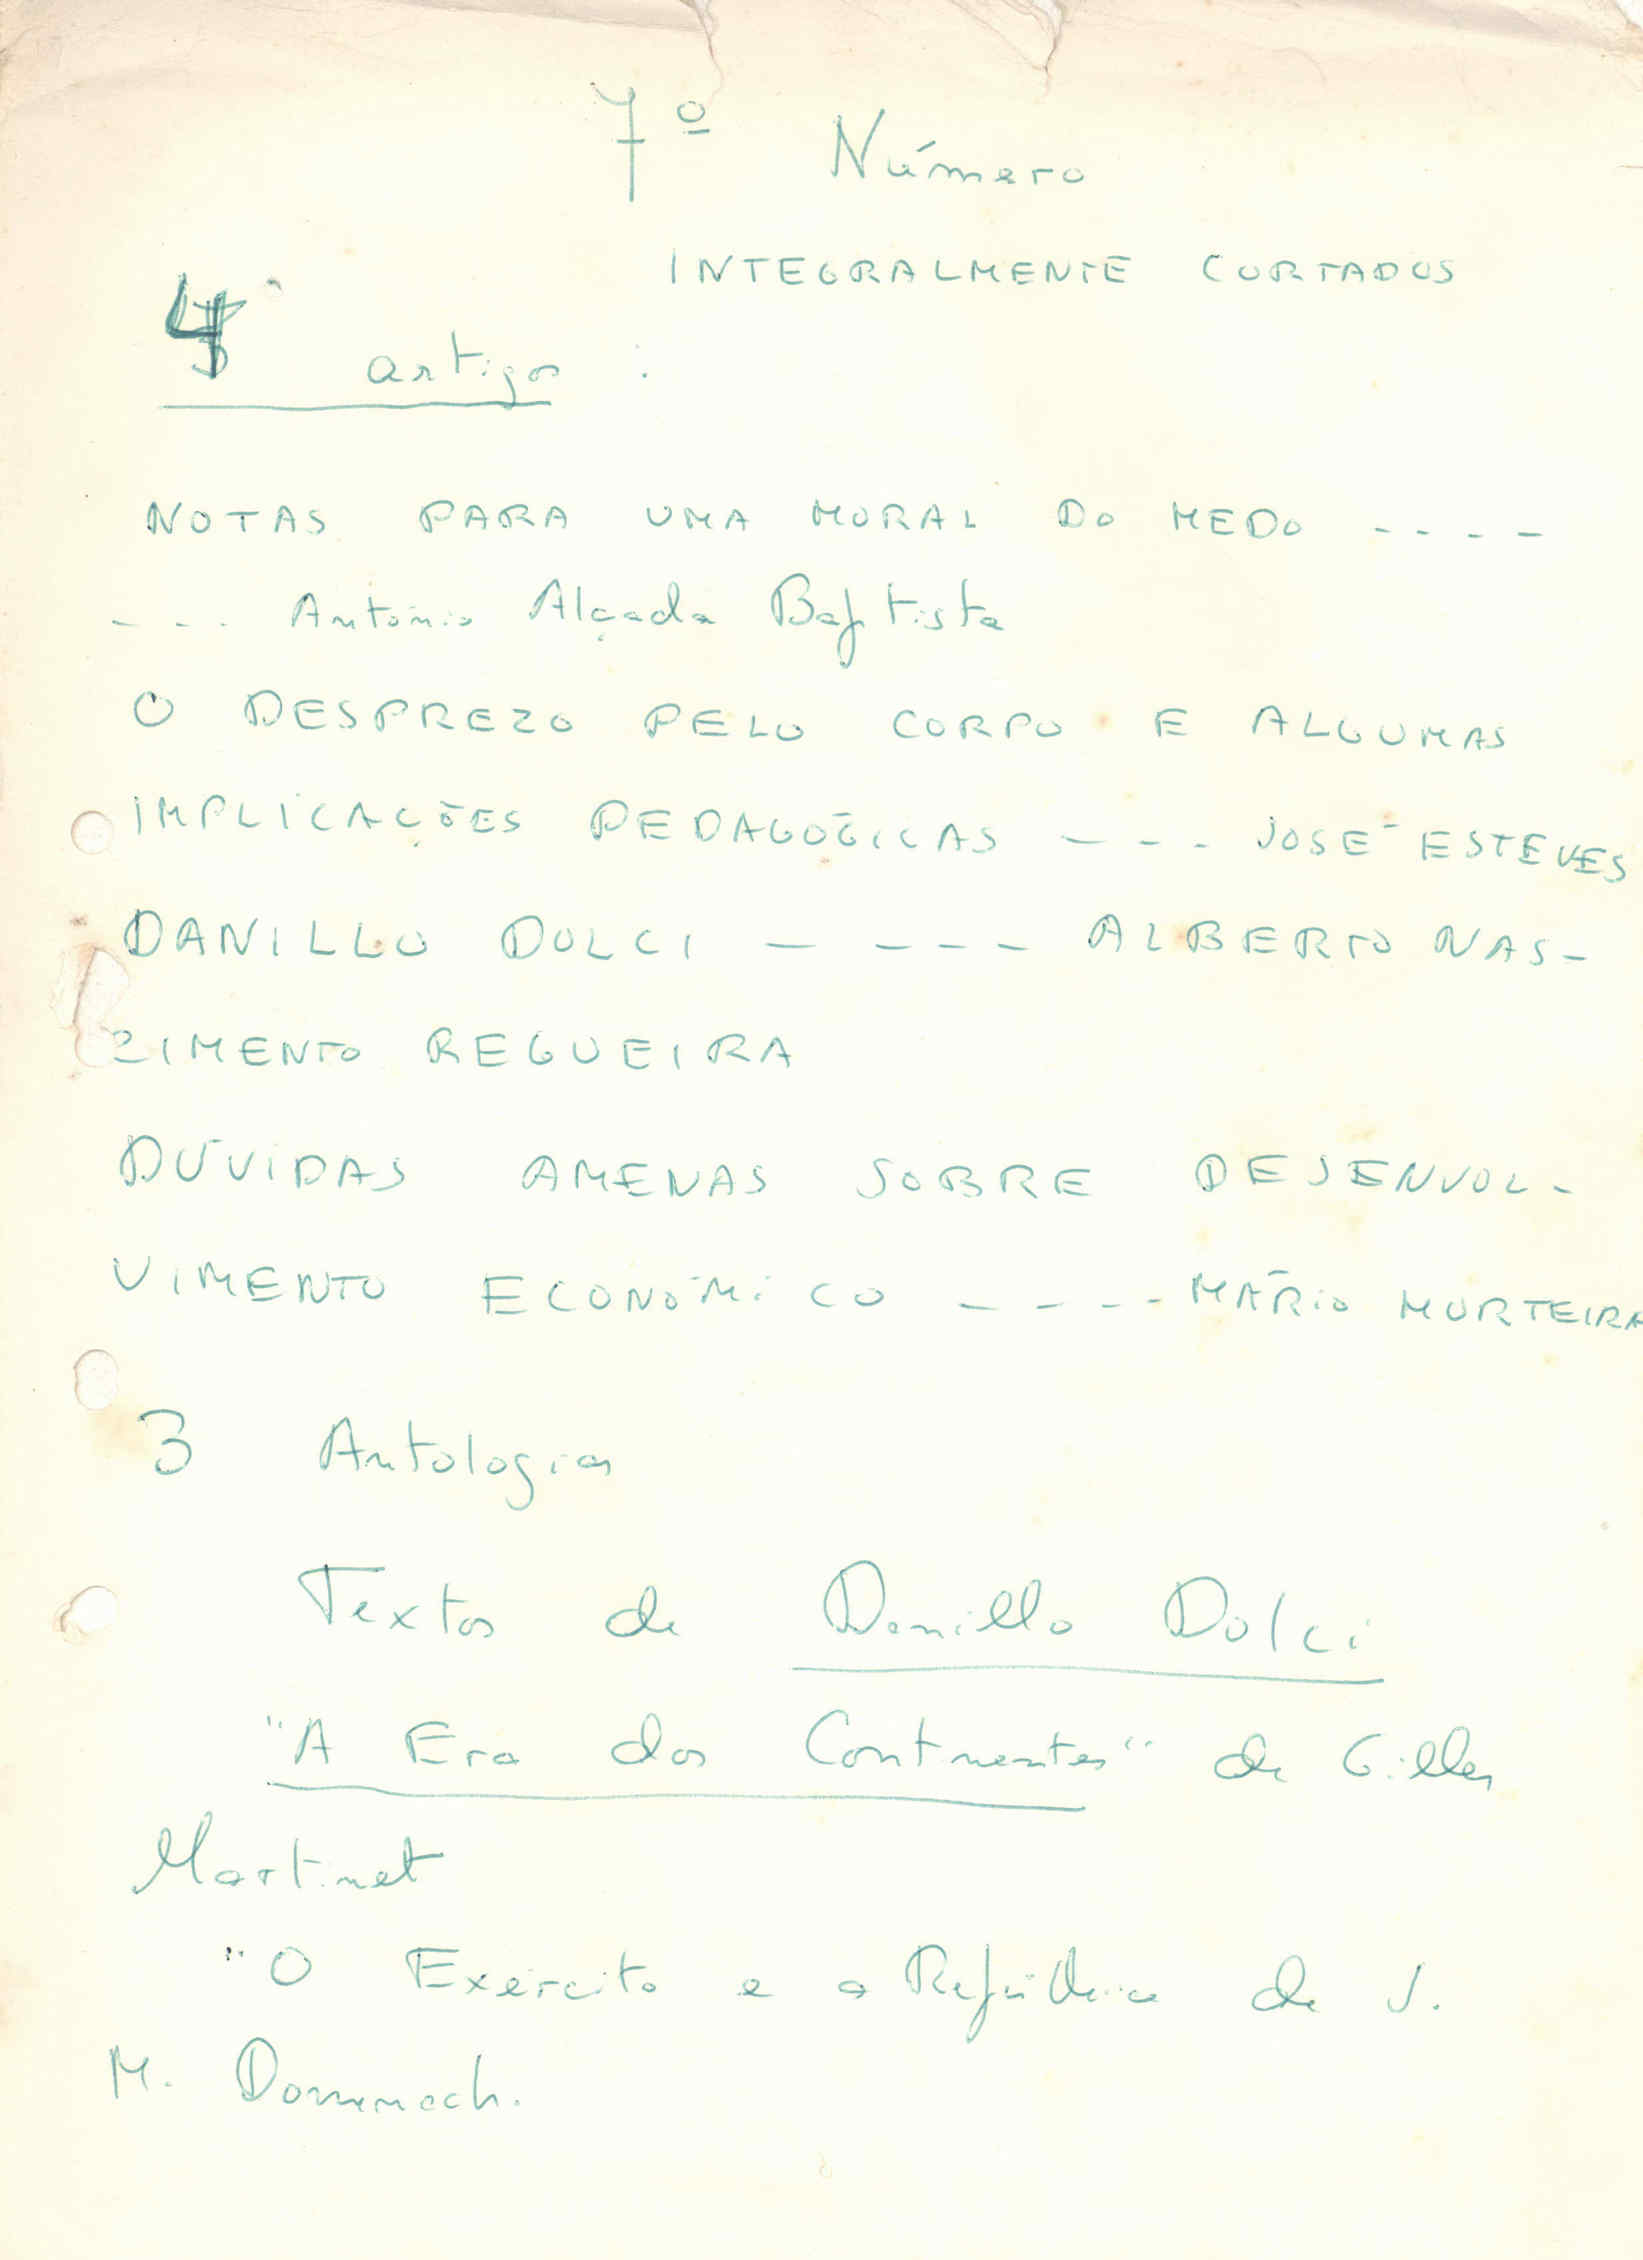 7º Número
INTEGRALMENTE CORTADOS
4 artigos :
NOTAS PARA UMA MORAL DO MEDO ----
--- António Alçada Baptista
O DESPREZO PELO CORPO E ALGUMAS
IMPLICAÇÕES PEDAGÓGICAS ---- JOSÉ ESTEVES
DANILLO DOLCI ---- ALBERTO NAS-
CIMENTO REGUEIRA
DÚVIDAS AMENAS SOBRE DESENVOL-
VIMENTO ECONÓMICO ---- MÁRIO MURTEIRA
3 Antologias
Textos de Danillo Dolci
"A Era dos Continentes" de Gilles
Martinet
"O Exército e a República de J.
M. Domenach.